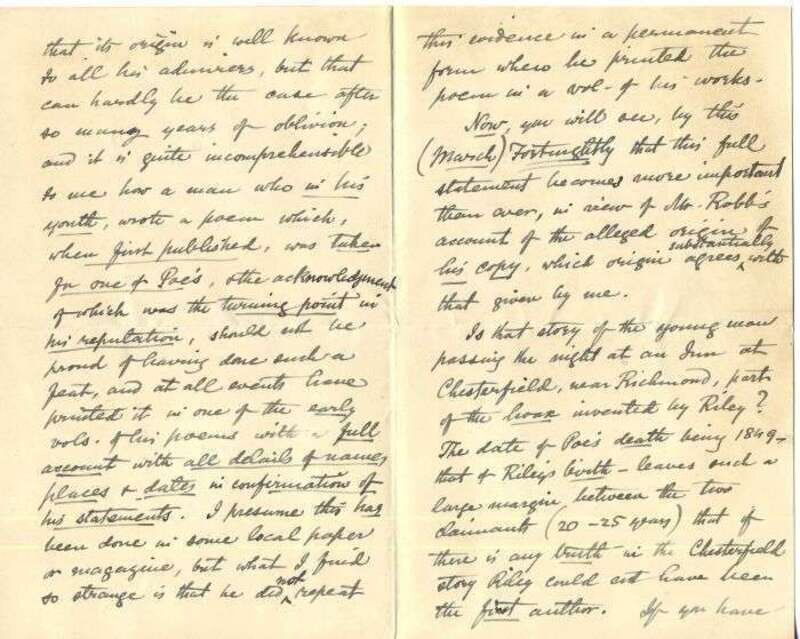 that its origin is well known
to all his admirers, but that
can hardly be the case after
so many years of oblivion;
and it is quite incomprehensible
to me how a man who in his
youth, wrote a poem which,
when first published, was taken
for one of Poe's, & the acknowledgment
of which was the turning point in
his reputation, should not be
proud of having done such a
feat, and at all events have
printed it in one of the early
vols. of his poems with a full
account with all details of names
places & dates in confirmation of
his statements. I presume this has
been done in some local paper
or magazine, but what I find
so strange is that he did not repeat
this evidence in a permanent
form when he printed the
poem in a vol. of his works.
Now, you will see, by this
(March) Fortnightly that this full
statement becomes more important
than ever, in view of Mr. Robb's
account of the alleged origin of
his copy, which origin substantially agrees with
that given by me.
Is that story of the young man
passing the night at an Inn at
Chesterfield, near Richmond, part
of the hoax invented by Riley?
The date of Poe's death being 1849 –
that of Riley's birth – leaves such a
large margin between the two
claimants (20 – 25 years) that if
there is any truth in the Chesterfield
story Riley could not have been
the first author. If you have